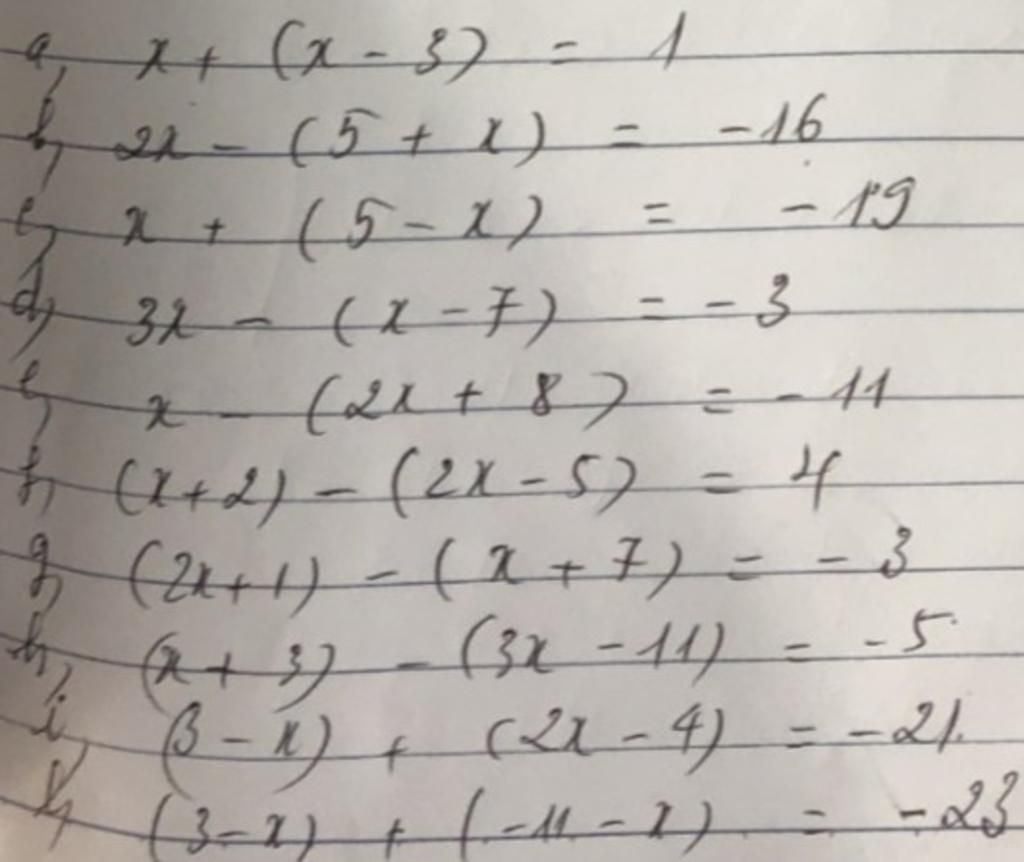 a, x + (x - 3) = 1
b, 2x - (5 + x) = -16
c, x + (5 - x) = -19
d, 3x - (x - 7) = -3
e, x - (2x + 8) = -11
f, (x+2) - (2x - 5) = 4
g, (2x+1) - (x + 7) = -3
h, (x + 3) - (3x - 11) = -5
i, (3 - x) + (2x - 4) = -21.
k, (3 - x) + (-11 - x) = -23